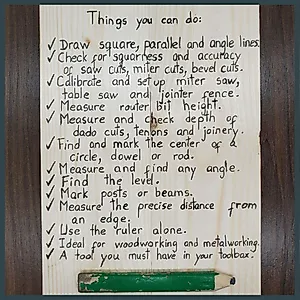 Things you can do:
✓ Draw square, parallel and angle lines.
✓ Check for squarness and accuracy
of saw cuts, miter cuts, bevel cuts.
✓ Calibrate and setup miter saw,
table saw and jointer fence.
✓ Measure router bit height.
✓ Measure and check depth of
dado cuts, tenons and joinery.
✓ Find and mark the center of a
circle, dowel or rod.
✓ Measure and find any angle.
✓ Find the level.
✓ Mark posts or beams.
✓ Measure the precise distance from
an edge.
✓ Use the ruler alone.
✓ Ideal for woodworking and metalworking.
✓ A tool you must have in your toolbox.